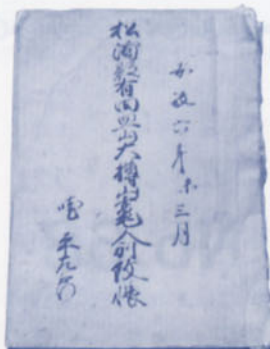 安政六年未三月
松浦郡有田皿山大樽山竃人別改帳